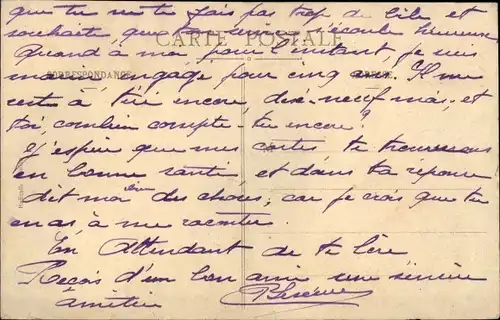 que tu ne te fais pas trop de bile et
souhaite que écoule heureuse
CARTE POSTALE
Quand à moi, pour l'instant, je suis
CORRESPONDANCE
marin, engagé pour cinq ans. Il me
reste à tiré encore, dix-neuf mois, et
toi, combien compte-tu encore?
J'espère que mes cartes te trouverons
en bonne santé, et dans ta réponse
dit moi bien des choses, car je crois que tu
en as à me raconter.
En Attendant de te lire
Reçois d'un bon ami une sincère
amitié